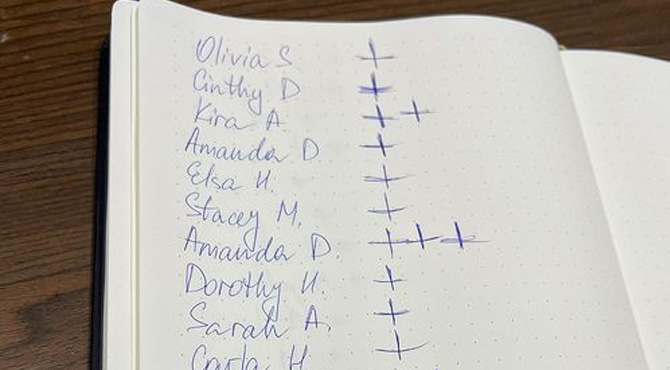 Olivia S +
Cinthy D +
Kira A + +
Amanda D +
Elsa H. +
Stacey M. +
Amanda D. + + +
Dorothy H. +
Sarah A. +
Carla H +